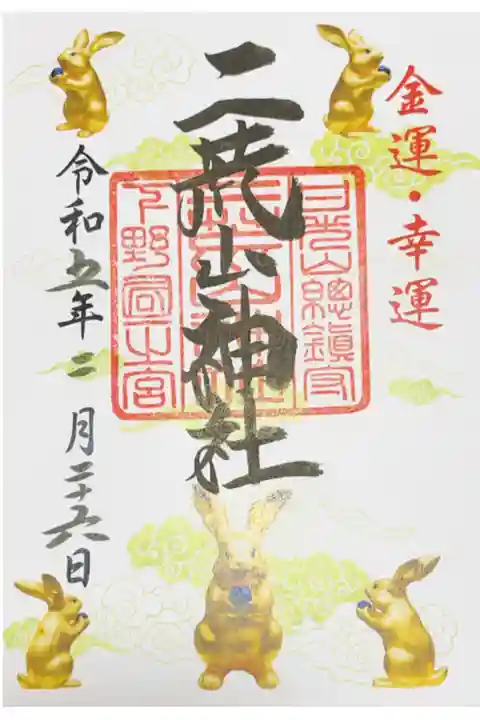 金運・幸運
日光山總鎮守
二荒山神社
下野國一之宮
令和五年二月二十六日